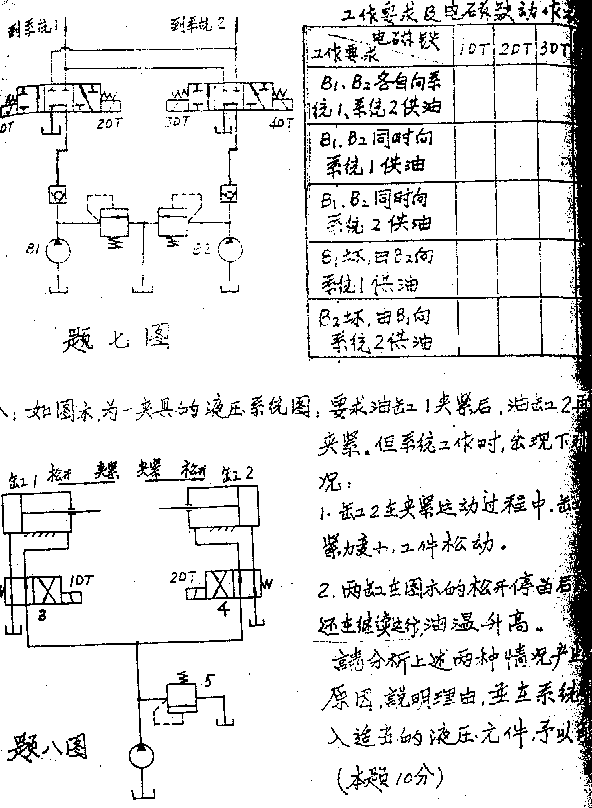 工作要求及电磁铁动作
到系统1
到系统2
电磁铁
工作要求
1DT
2DT
3DT
B1、B2各自向系
统1、系统2供油
B1、B2同时向
系统1供油
B1、B2同时向
系统2供油
B1坏,由B2向
系统1供油
B2坏,由B1向
系统2供油
DT
2DT
3DT
4DT
B1
B2
题七图
如图示,为一夹具的液压系统图,要求油缸1夹紧后,油缸2再
夹紧。但系统工作时,出现下
况:
1.缸2在夹紧运动过程中.缸
紧力变小,工件松动。
2.两缸在图示的松开停留后
还在继续运行,油温升高。
请分析上述两种情况产
原因,说明理由,并在系统
入适当的液压元件,予以
(本题10分)
缸1 松开 夹紧 夹紧 松开 缸2
1DT
2DT
3
4
5
题八图